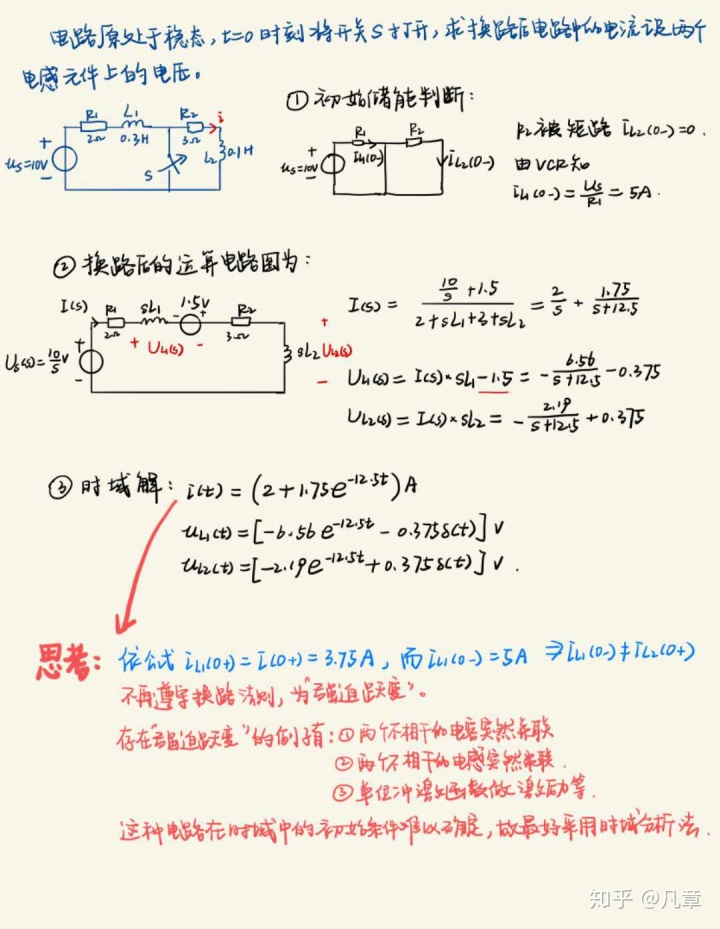 电路原处于稳态，t=0时刻将开关S打开，求换路后电路中的电流及两个
电感元件上的电压。
① 初始储能判断：
R1 L1 R2 i
2Ω 0.3H 3Ω
us=10V
S
L2 0.1H
R1 R2
us=10V
iL1(0-)
iL2(0-)
R2被短路 iL2(0-)=0.
由VCR知
iL1(0-)=Us/R1=5A.
② 换路后的运算电路图为：
I(s) R1 sL1 1.5V R2
2Ω 3Ω
+ UL1(s) -
Us(s)=10/s V
sL2 UL2(s)
I(s) = (10/s +1.5)/(2+sL1+3+sL2) = 2/s + 1.75/(s+12.5)
UL1(s) = I(s)×sL1-1.5 = -6.56/(s+12.5) -0.375
UL2(s) = I(s)×sL2 = -2.19/(s+12.5) +0.375
③ 时域解：i(t) = (2+1.75e^-12.5t)A
uL1(t)=[-6.56e^-12.5t - 0.375δ(t)]V
uL2(t)=[-2.19e^-12.5t+0.375δ(t)]V.
思考：依公式 iL1(0+)=i(0+)=3.75A，而iL1(0-)=5A ⇒iL1(0-)≠iL2(0+)
不再遵守换路法则，为"强迫跃变"。
存在"强迫跃变"的例子有：①两个不相干的电容突然并联
②两个不相干的电感突然串联.
③单位冲激函数做激励等.
这种电路在时域中的初始条件难以确定，故最好采用时域分析法.
知乎 @凡章